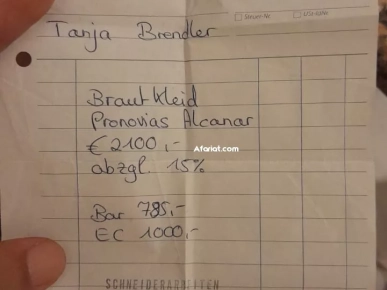 Steuer-Nr.
Tanja Brendler
Brautkleid
Pronovias Alcanar
€ 2100,-
Afariat.com
abzgl. 15%
Bar 785,-
EC 1000,-
SCHNEIDERARBEITEN